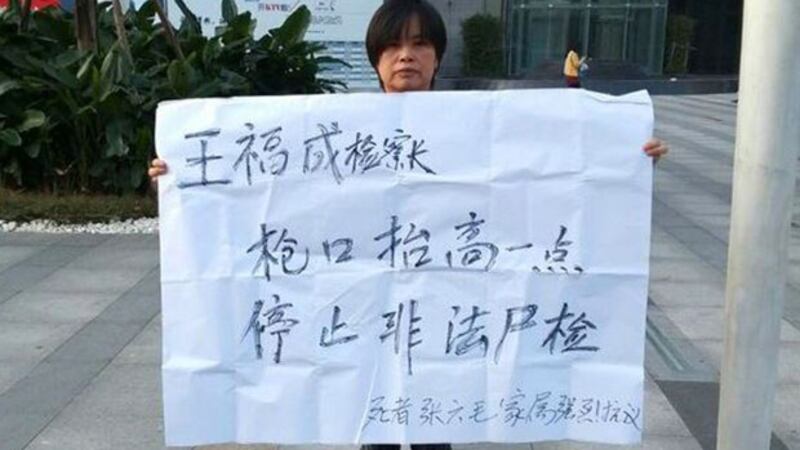 王福成检察长
枪口抬高一点
停止非法尸检
死者张六毛家属强烈抗议